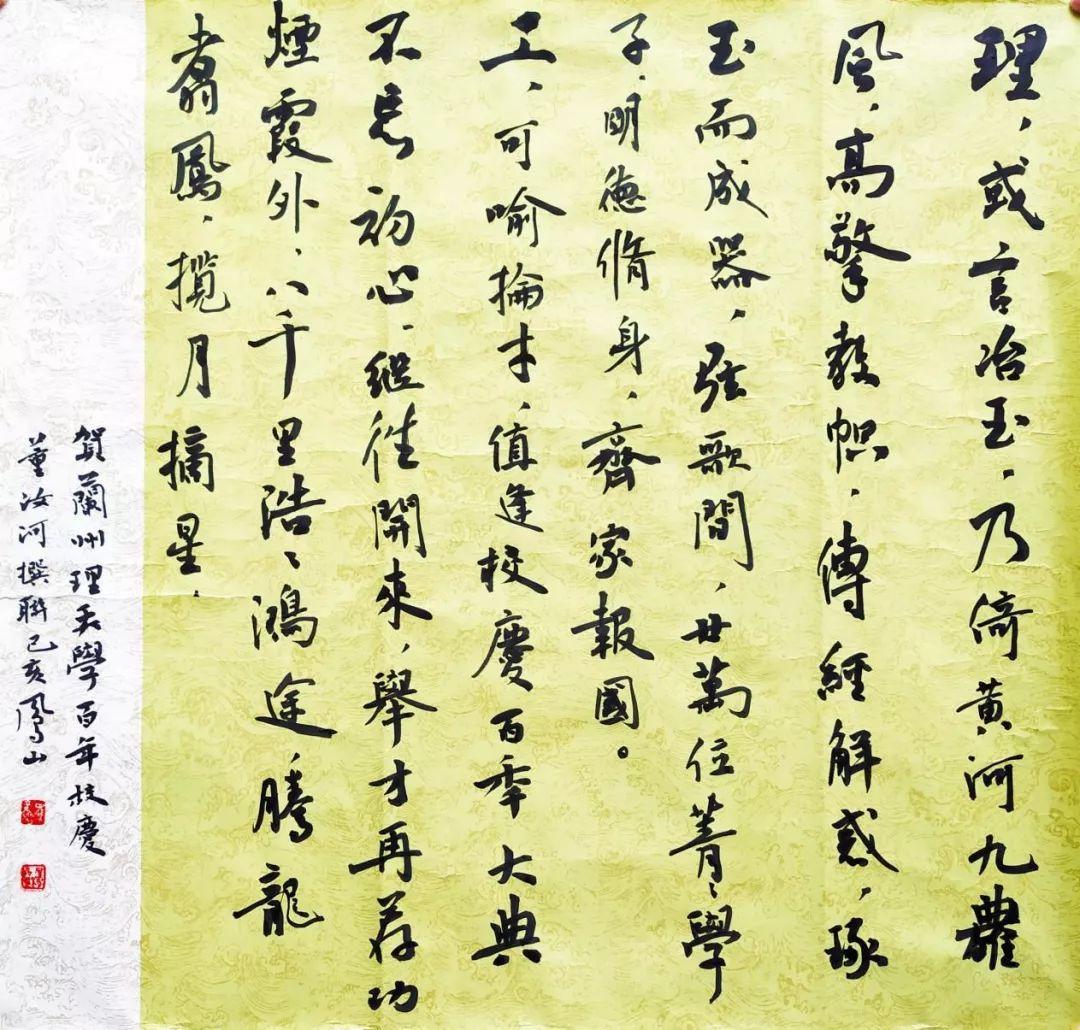 理，或言冶玉，乃倚黄河九
風，高擎教幟，傳經解惑，琢
玉而成器，弦歌間，廿萬位菁々學
子，明德脩身，齊家報國。
工，可喻掄才，值逢校慶百秊大典
不忘初心，繼往開來，舉才再荐功
煙霞外，八千里浩々鴻途，騰龍
翥鳳，攬月摘星．
賀蘭州理工大學百年校慶
董汝河撰聯己亥鳳山